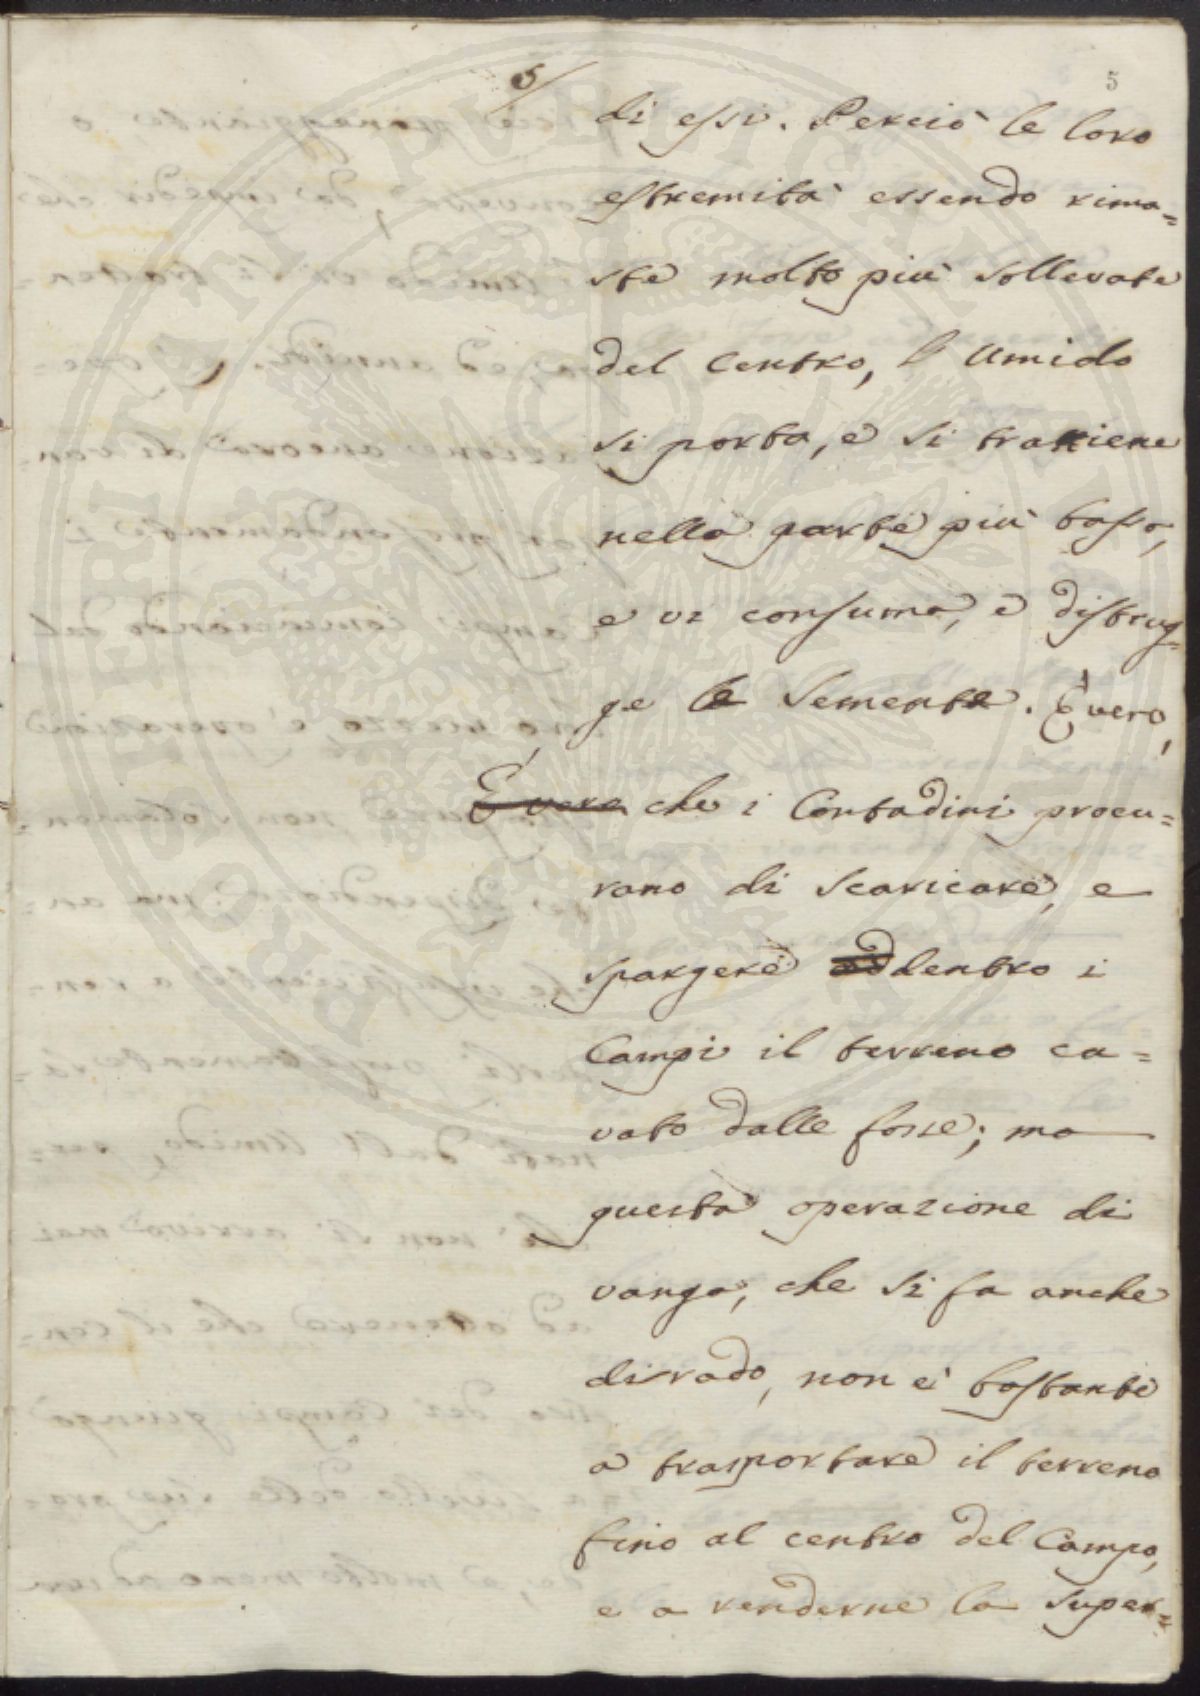 5/
5
di essi. Perciò le loro
estremità essendo rima=
ste molto più sollevate
del Centro, l'Umido
si porta, e si trattiene
nella parte più bassa,
e vi consuma, e distrug=
ge le Semente. È vero,
È vero che i Contadini procu=
rano di scaricare, e
spargere addentro i
Campi il terreno ca=
vato dalle fosse; ma
questa operazione di
vanga, che si fa anche
disrado, non è bastante
a trasportare il terreno
fino al centro del Campo,
e a renderne la super=
PROSPERITATI PUBLICAE AUGENDAE